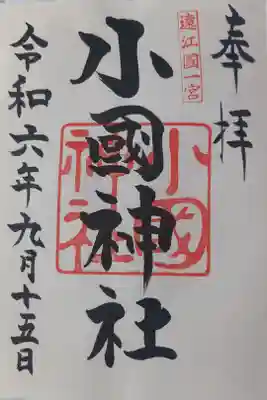 奉拝
遠江國一宮
小國神社
小國神社
令和六年九月十五日